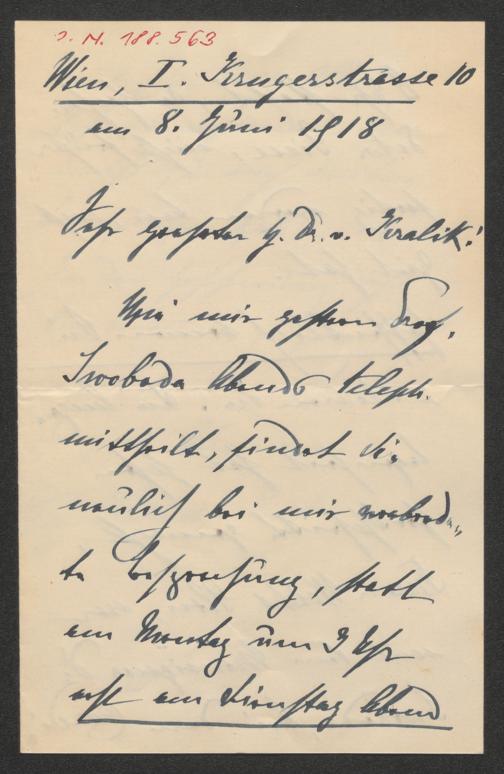 I. N. 188.563
Wien, I. Krugerstrasse 10
am 8. Juni 1918
Sehr geehrter H. Dr. v. Kralik!
Wie mir gestern Prof.
Swoboda Abends teleph.
mittheilt, findet die
neulich bei mir verabrede-
te Besprechung, statt
am Montag um 9 Uhr
erst am Dienstag Abend